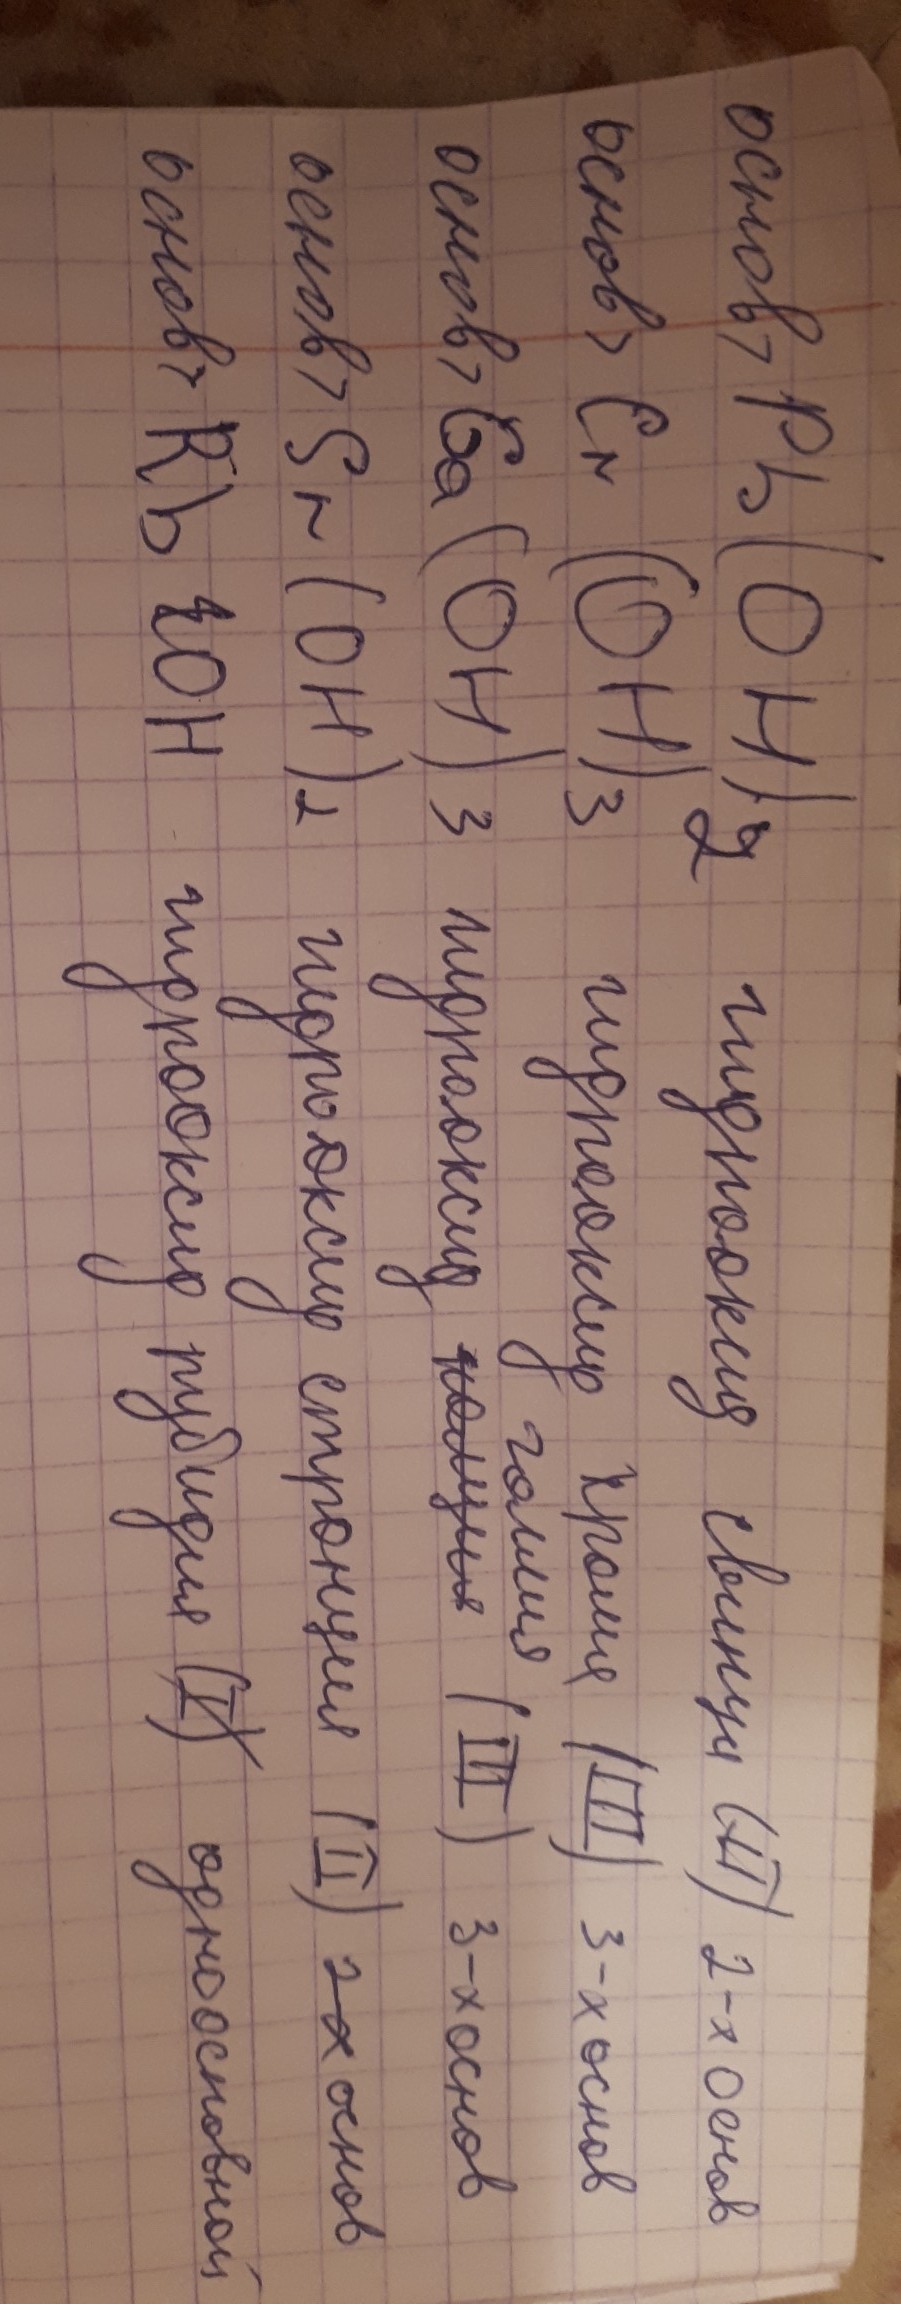 основ, Pb(OH)2 гидрооксид свинца (II) 2-х основ
основ, Cr(OH)3 гидрооксид хрома (III) 3-х основ
галия
основ, Ga(OH)3 гидрооксид (III) 3-х основ
основ, Sr(OH)2 гидрооксид стронция (II) 2-х основ
основ, Rb OH гидрооксид рубидия (I) одноосновной